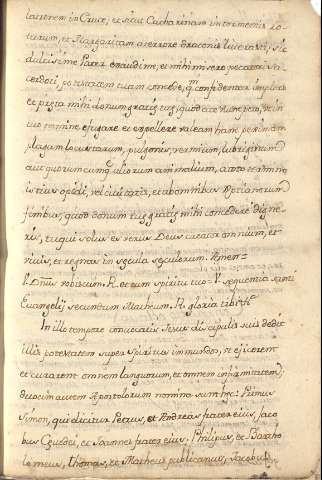 latronem in Cruce, et sicut Catharinam in tormentis ro-
tarum, et Margaritam a terrore Draconis liberasti, sic
dulcissime Pater exaudi me, et mihi misero peccatori sa-
cerdoti potestatem tuam concede, confidenter imploro
et præsta mihi donum gratiæ tuæ, quod a te nunc peto, ut in
tuo nomine efugare et expellere valeam hanc pestiferam
plagam locustarum, pulgonis, vermium,
aut quorumcumq. aliorum animalium, a toto termino
istius opidi, vel civitatis, et ab omnibus
finibus, quod donum tuæ gratiæ mihi concedere digne-
ris, tu qui solus es verus Deus creator omnium, et
vivis, et regnas in secula seculorum. Amen =
V. Dnus. vobiscum. R. et cum spiritu tuo. V. sequentia sancti
Evangelij secundum Matheum. R. gloria tibi
In illo tempore convocatis Jesus discipulis suis dedit
illis potestatem super spiritus inmundos, ut ejicerent
et curarent omnem languorum, et omnem infirmitatem;
duodecim autem Apostolorum nomina sunt hec: Primus
Simon, qui dicitur Petrus, et Andreas frater eius, Jaco
bus Cevedei, et Joannes frater eius, Philipus, et Bartho
lomeus, thomas, et Matheus publicanus, Jacobus